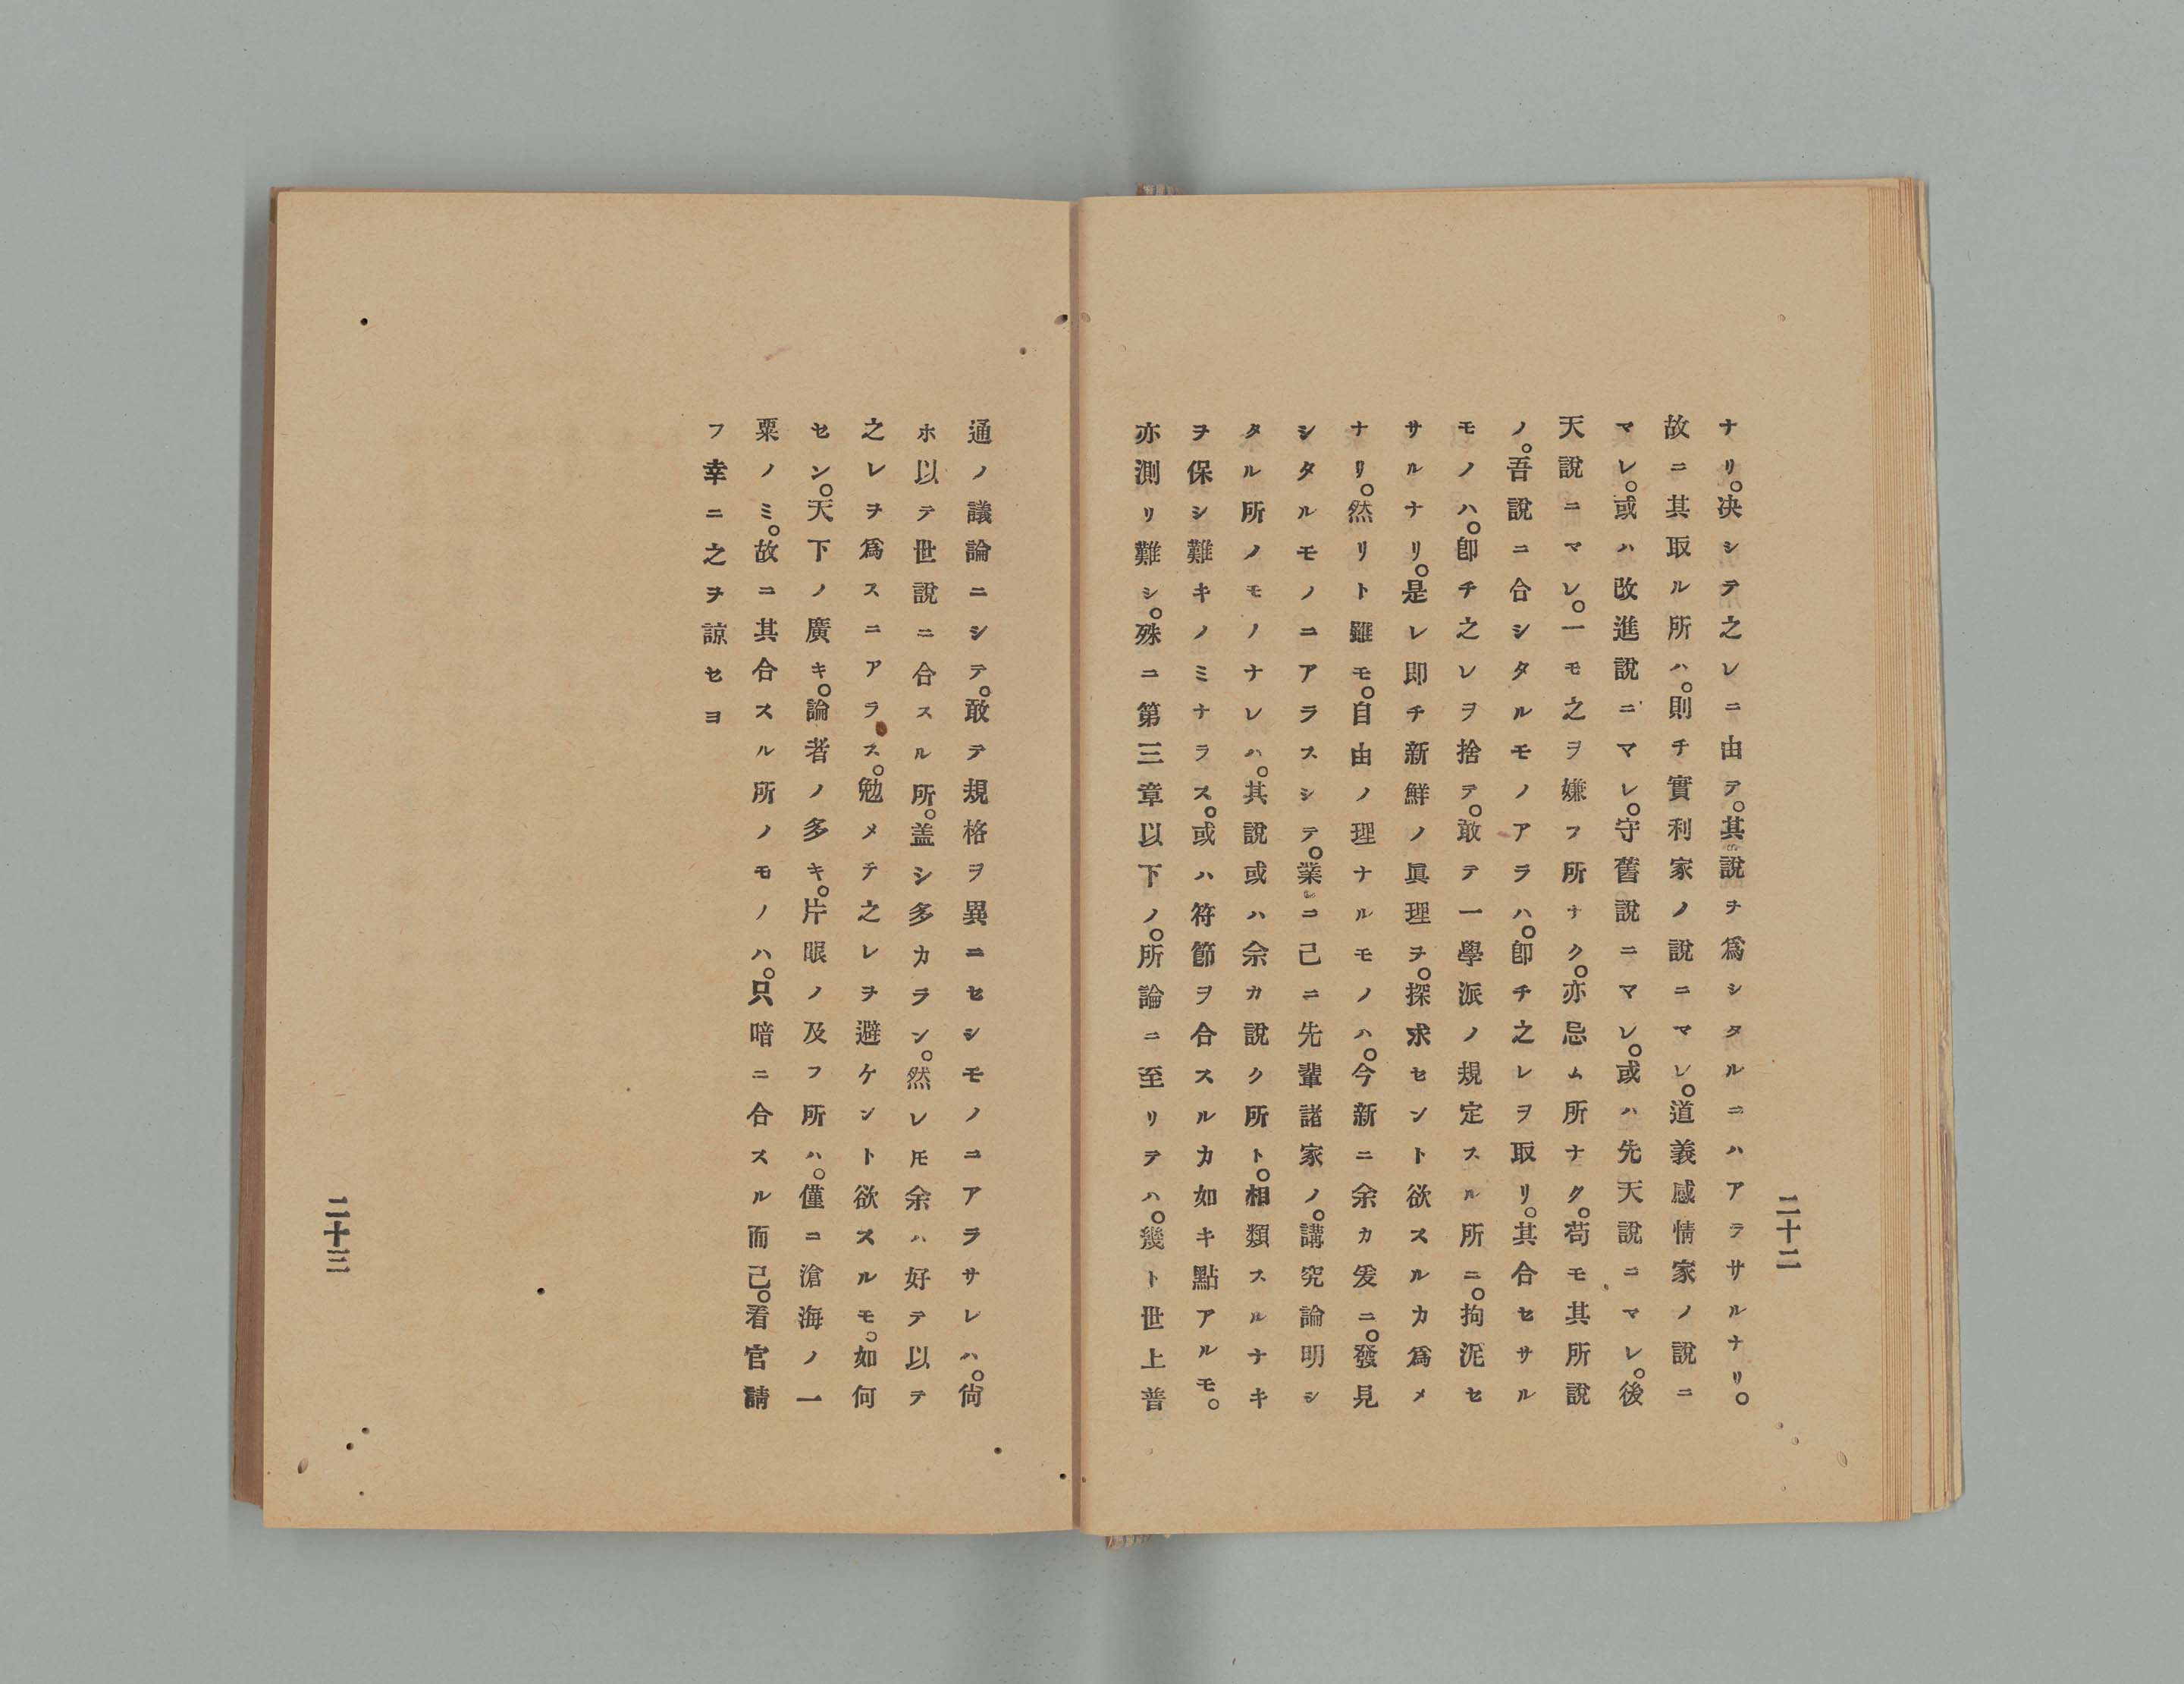 ナリ。决シテ之レニ由テ。其說ヲ爲シタルニハアラサルナリ。
故ニ其取ル所ハ。則チ實利家ノ說ニマレ。道義感情家ノ說ニ
マレ。或ハ改進說ニマレ。守舊說ニマレ。或ハ先天說ニマレ。後
天說ニマレ。一モ之ヲ嫌フ所ナク。亦忌ム所ナク。苟モ其所說
ノ。吾說ニ合シタルモノアラハ。卽チ之レヲ取リ。其合セサル
モノハ。卽チ之レヲ捨テ。敢テ一學派ノ規定スル所ニ。拘泥セ
サルナリ。是レ即チ新鮮ノ眞理ヲ。探求セント欲スルカ爲メ
ナリ。然リト雖モ。自由ノ理ナルモノハ。今新ニ余カ爰ニ。發見
シタルモノニアラスシテ。業ニ己ニ先輩諸家ノ。講究論明シ
タル所ノモノナレハ。其說或ハ余カ說ク所ト。相類スルナキ
ヲ保シ難キノミナラス。或ハ符節ヲ合スルカ如キ點アルモ。
亦測リ難シ。殊ニ第三章以下ノ。所論ニ至リテハ。幾ト世上普
二十二
通ノ議論ニシテ。敢テ規格ヲ異ニセシモノニアラサレハ。尙
ホ以テ世說ニ合スル所。盖シ多カラン。然レ𪜈余ハ好テ以テ
之レヲ爲スニアラス。勉メテ之レヲ避ケント欲スルモ。如何
セン。天下ノ廣キ。論者ノ多キ。片眼ノ及フ所ハ。僅ニ滄海ノ一
粟ノミ。故ニ其合スル所ノモノハ。只暗ニ合スル而己。看官請
フ幸ニ之ヲ諒セヨ
二十三